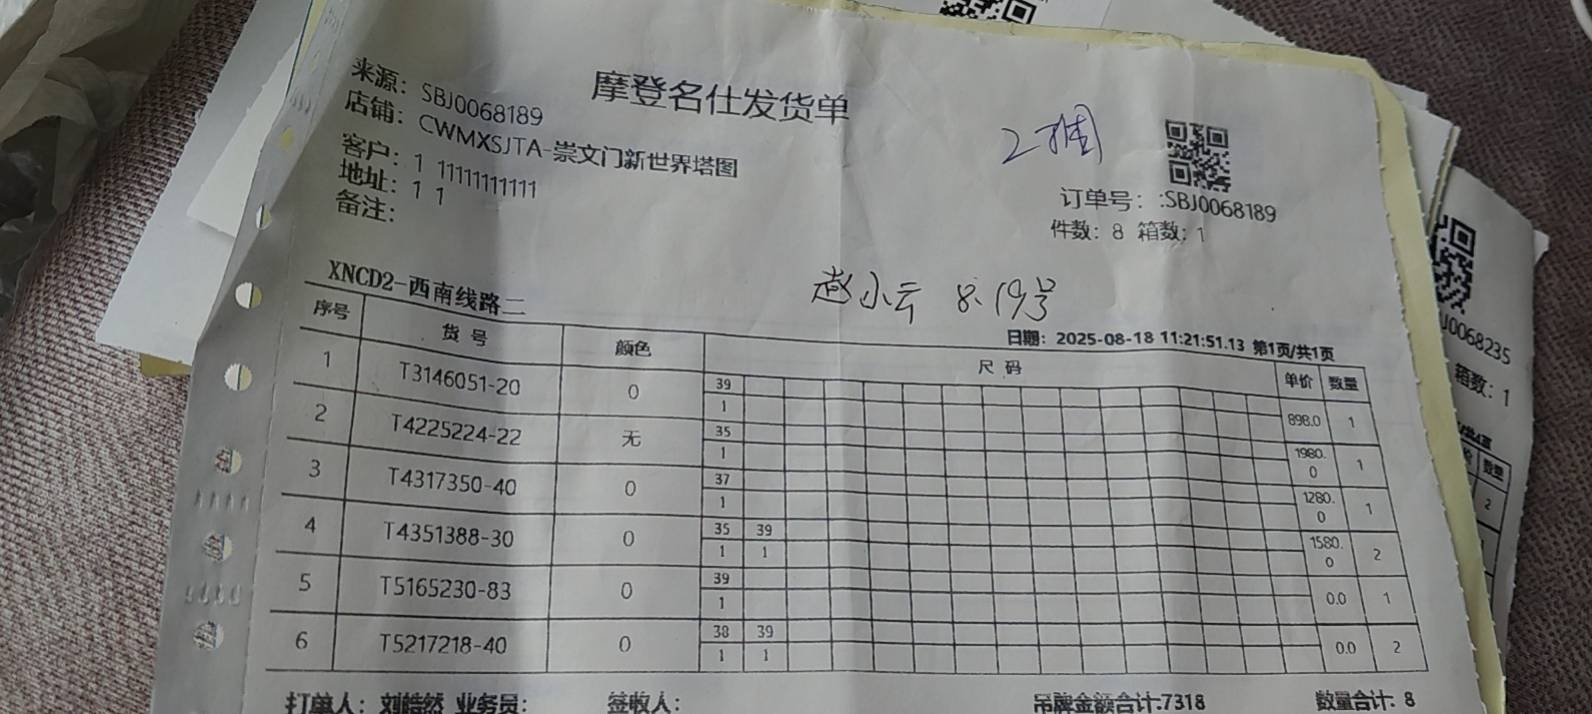 摩登名仕发货单
来源：SBJ0068189
店铺：CWMXSJTA-崇文门新世界塔图
客户：1 11111111111
地址：1 1
备注：
订单号：:SBJ0068189
件数：8 箱数：1
赵小云 8.19号
XNCD2-西南线路二
日期：2025-08-18 11:21:51.13 第1页/共1页
序号 货号 颜色 尺码 单价 数量
1 T3146051-20 0 39 1 898.0 1
2 T4225224-22 无 35 1 1980.0 1
3 T4317350-40 0 37 1 1280.0 1
4 T4351388-30 0 35 39 1 1 1580.0 2
5 T5165230-83 0 39 1 0.0 1
6 T5217218-40 0 38 39 1 1 0.0 2
打单人：刘皓然 业务员： 签收人： 吊牌金额合计:7318 数量合计：8
J0068235
箱数：1
数量
2